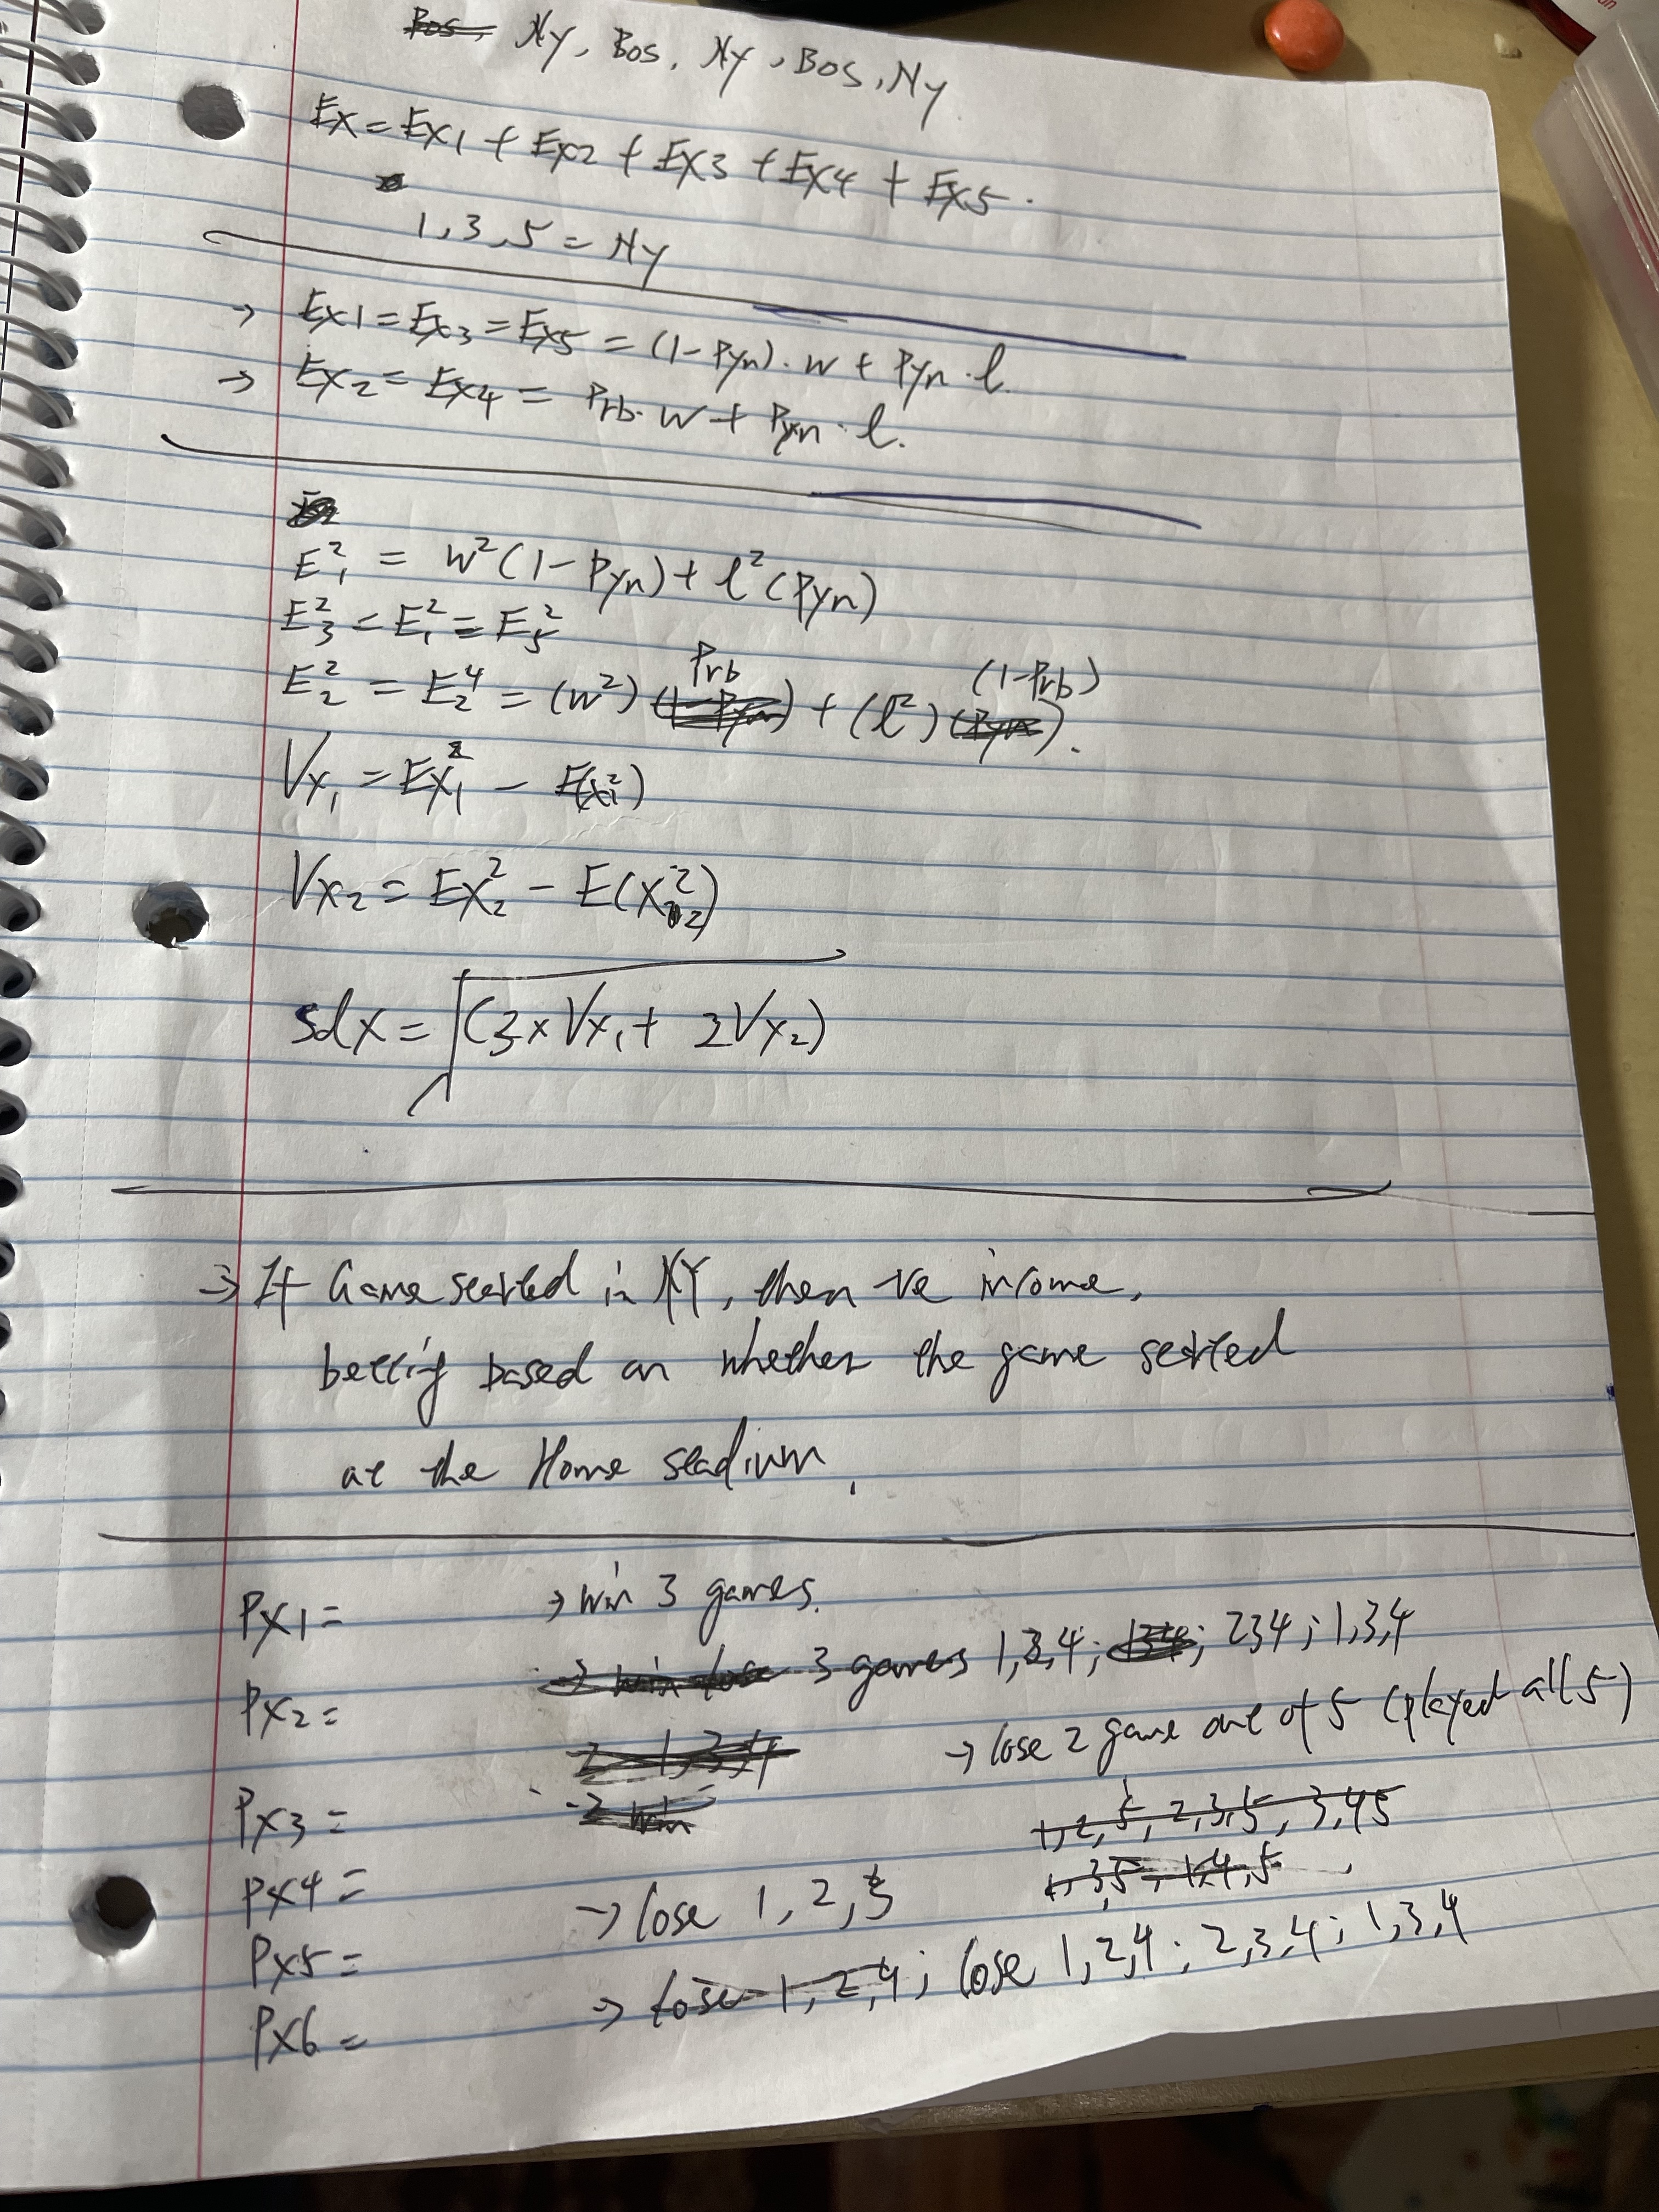 Bos, Ny, Bos, Ny, Bos, Ny
Ex = Ex1 + Ex2 + Ex3 + Ex4 + Ex5.
1,3,5 = Ny
→ Ex1 = Ex3 = Ex5 = (1-Pyn)·w + Pyn·l.
→ Ex2 = Ex4 = Prb·w + Pyn·l.
E₁² = w²(1-Pyn) + l²(Pyn)
E₃² = E₁² = E₅²
Prb (1-Prb)
E₂² = E₂⁴ = (w²) (1-Pyn) + (l²) (Pyn).
Vx₁ = Ex₁² - E(x₁²)
Vx₂ = Ex₂² - E(x₂²)
sdx = √(3×Vx₁ + 2Vx₂)
→ If Game started in NY, then -ve income,
betting based on whether the game started
at the Home stadium,
Px1 = → win 3 games.
→ win lose 3 games 1,2,4; 134; 234; 1,3,4
Px2 =
→ lose 2 game out of 5 (played all 5)
2 1,3,4
Px3 = -2 win
1,2,5, 2,3,5, 3,4,5
1,3,5, 1,4,5
Px4 = → lose 1, 2, 3
Px5 =
→ lose 1, 2, 4; lose 1,2,4; 2,3,4; 1,3,4
Px6 =